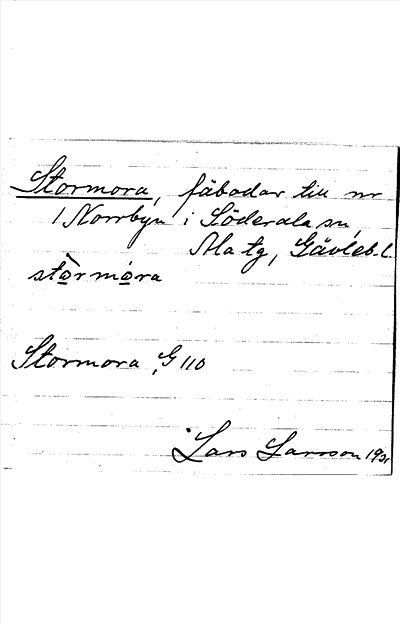 Stormora, fäbodar till nr
1 Norrbyn i Söderala sn,
Ala tg, Gävleb. l.
stòrmóra
Stormora, G 110
Lars Larsson 1921